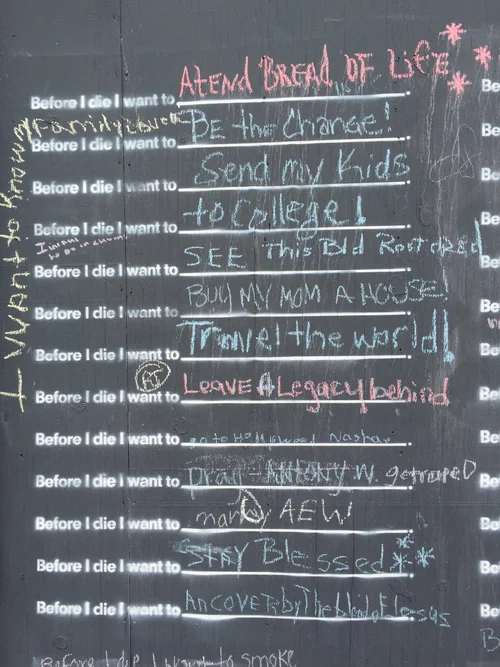 Before I die I want to ATEND BREAD OF LiFE
Before I die I want to BE the Change!
Before I die I want to Send my Kids
Before I die I want to to College!
Before I die I want to SEE This Bld Rostored
Before I die I want to BUY MY MOM A HOUSE!
Before I die I want to Travel the world!
Before I die I want to LEAVE A Legacy behind
Before I die I want to go to Hollywood
Before I die I want to Pray - ANTONY W.
Before I die I want to marry AEW
Before I die I want to STAY Blessed
Before I die I want to
I WANT to Know my Family
Before I die I want to smoke
Be